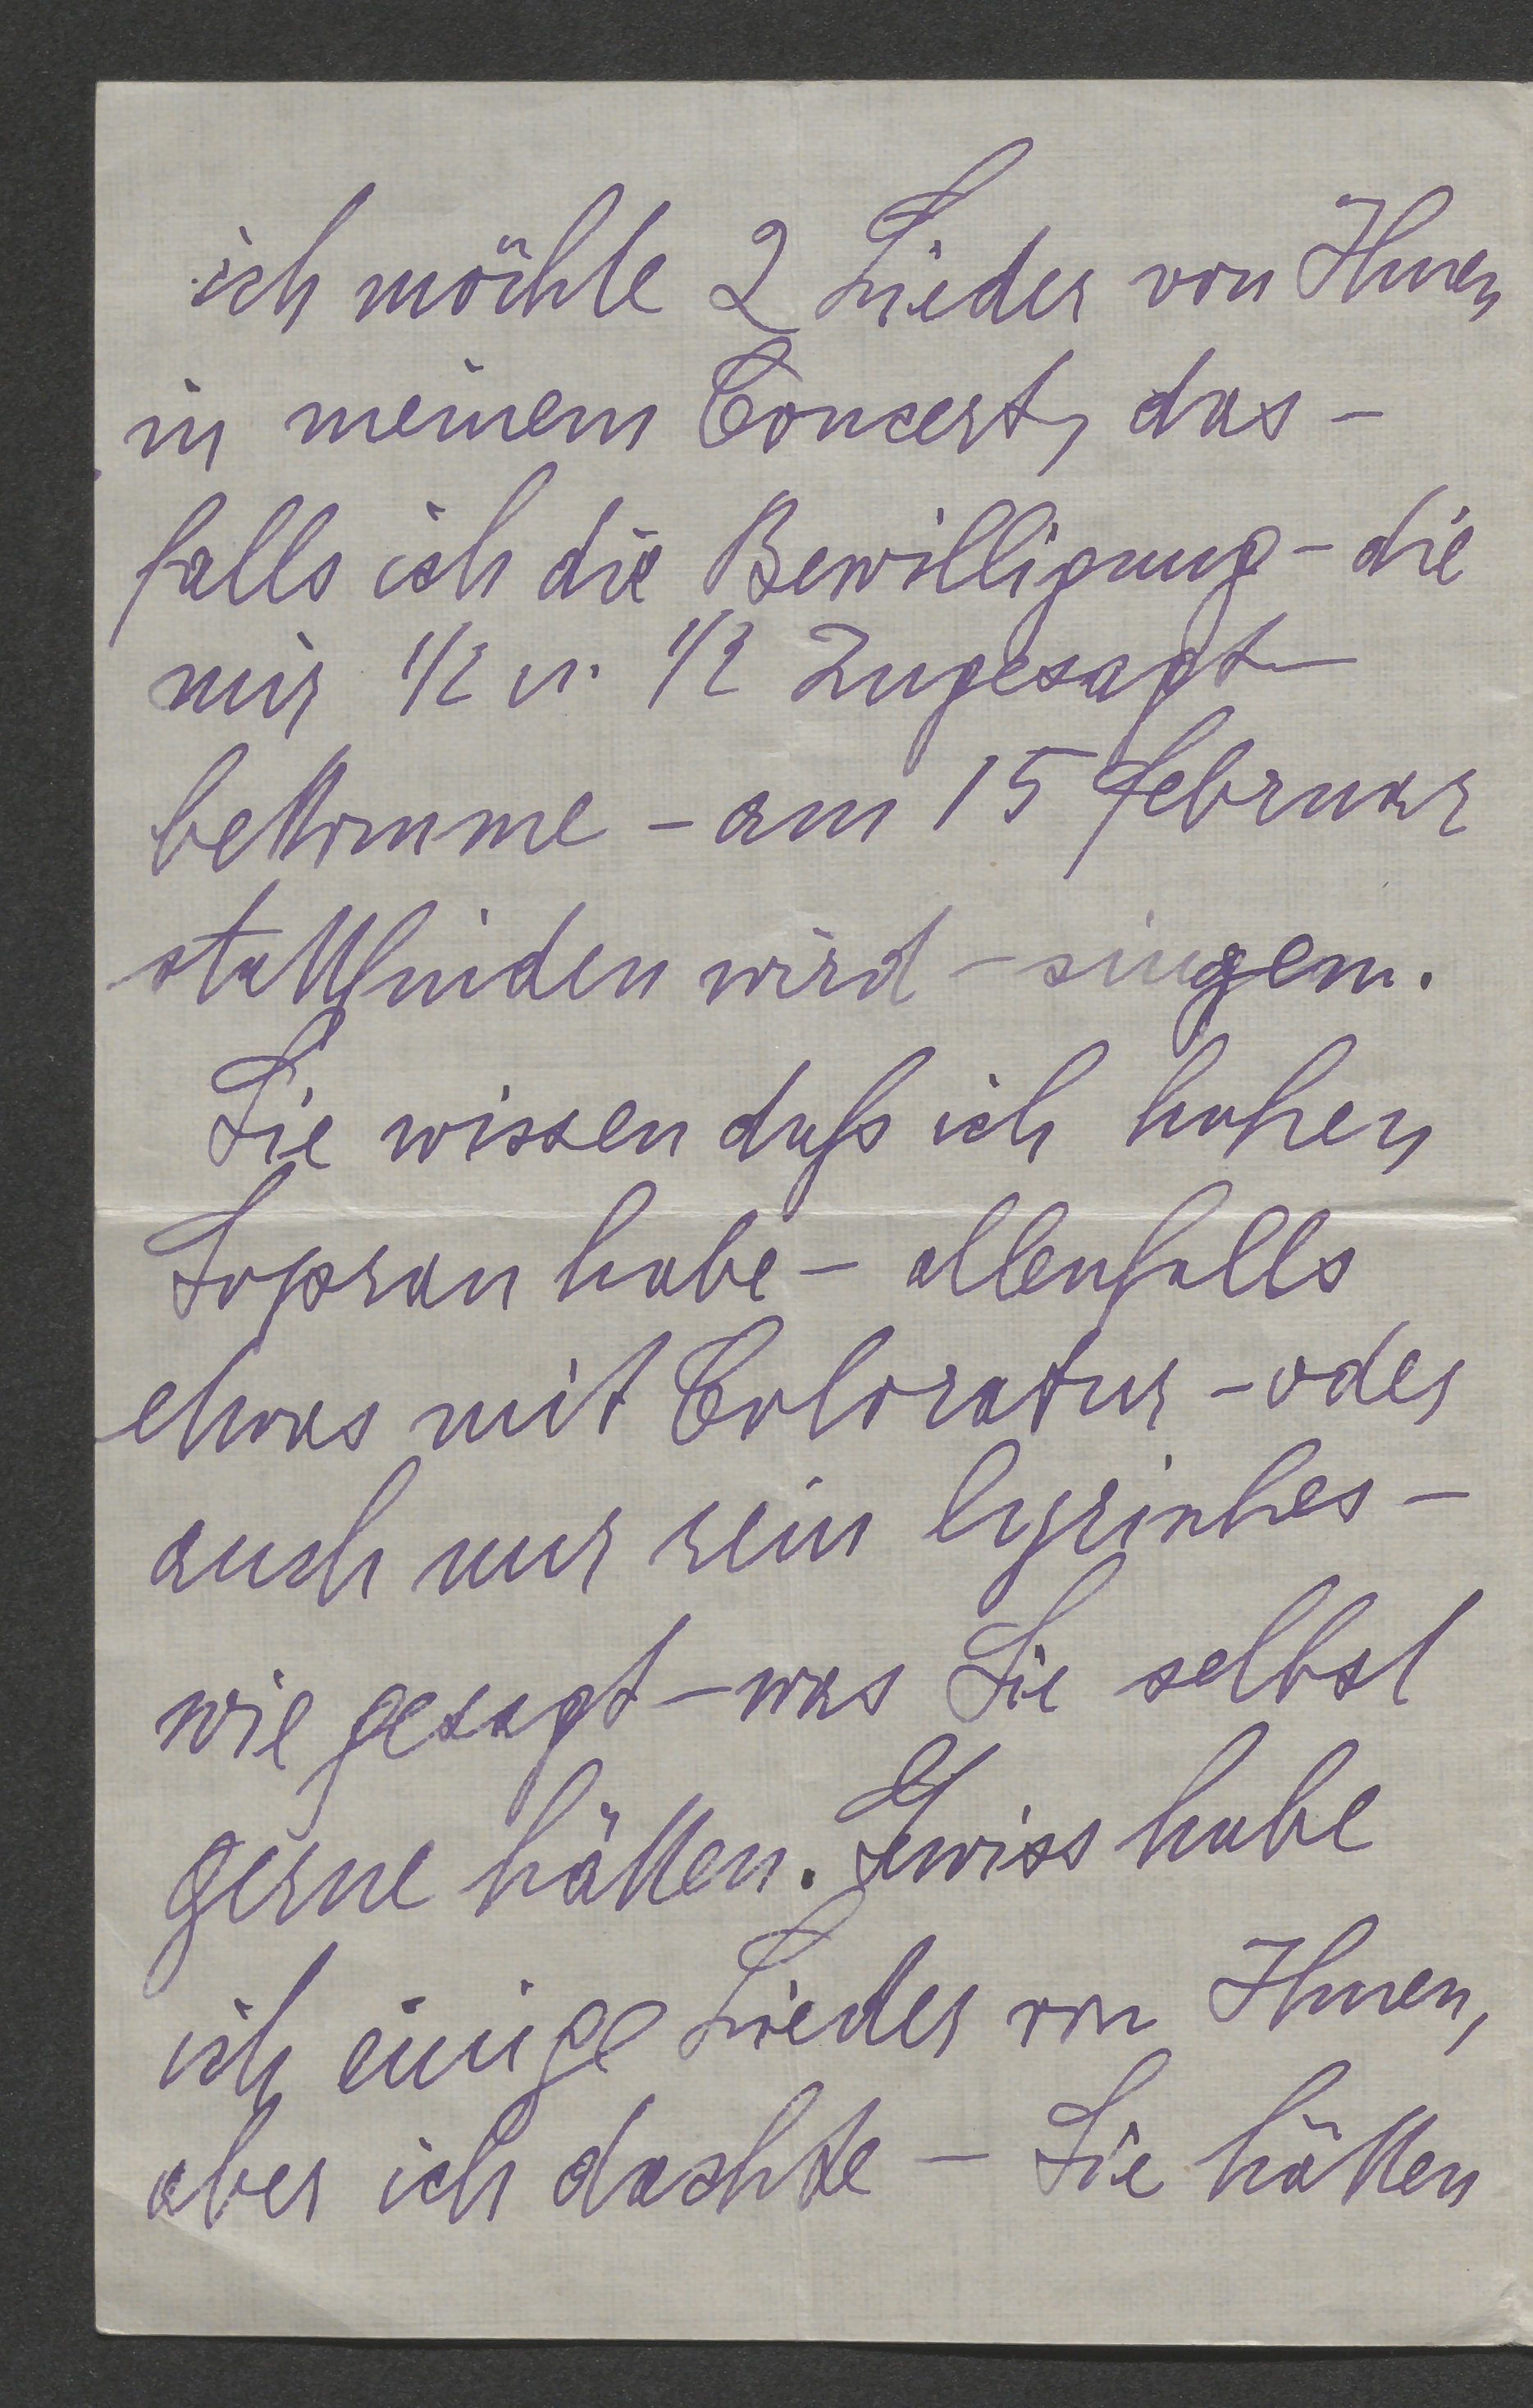 ich möchte 2 Lieder von Ihnen
in meinem Concert, das –
falls ich die Bewilligung – die
mir 1/2 u. 1/2 zugesagt –
bekomme – am 15 Februar
stattfinden wird – singen.
Sie wissen daß ich hohen
Sopran habe – allenfalls
etwas mit Coloratur – oder
auch nur rein lyrisches –
wie gesagt – was Sie selbst
gerne hätten. Gewiss habe
ich einige Lieder von Ihnen,
aber ich dachte – Sie hätten